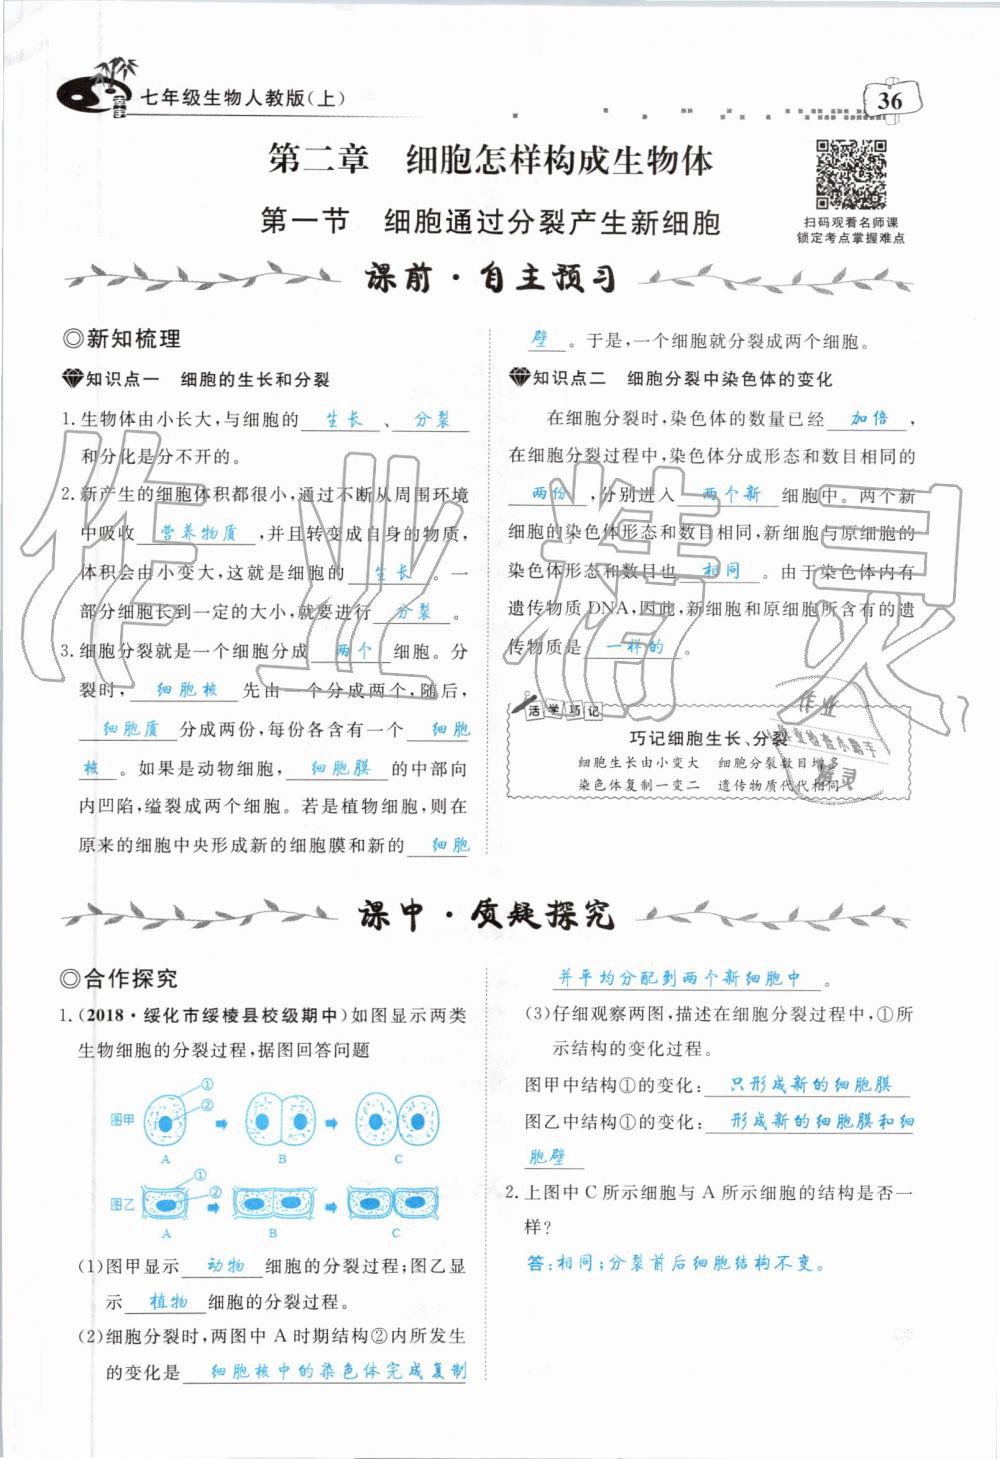 七年级生物人教版(上)
36
第二章 细胞怎样构成生物体
第一节 细胞通过分裂产生新细胞
扫码观看名师课
锁定考点掌握难点
课前·自主预习
◎新知梳理
知识点一 细胞的生长和分裂
1.生物体由小长大,与细胞的 生长 、 分裂
和分化是分不开的。
2.新产生的细胞体积都很小,通过不断从周围环境
中吸收 营养物质 ,并且转变成自身的物质,
体积会由小变大,这就是细胞的 生长 。一
部分细胞长到一定的大小,就要进行 分裂 。
3.细胞分裂就是一个细胞分成 两个 细胞。分
裂时, 细胞核 先由一个分成两个,随后,
细胞质 分成两份,每份各含有一个 细胞
核 。如果是动物细胞, 细胞膜 的中部向
内凹陷,缢裂成两个细胞。若是植物细胞,则在
原来的细胞中央形成新的细胞膜和新的 细胞
壁 。于是,一个细胞就分裂成两个细胞。
知识点二 细胞分裂中染色体的变化
在细胞分裂时,染色体的数量已经 加倍 ,
在细胞分裂过程中,染色体分成形态和数目相同的
两份 ,分别进入 两个新 细胞中。两个新
细胞的染色体形态和数目相同,新细胞与原细胞的
染色体形态和数目也 相同 。由于染色体内有
遗传物质DNA,因此,新细胞和原细胞所含有的遗
传物质是 一样的 。
活学巧记
巧记细胞生长、分裂
细胞生长由小变大 细胞分裂数目增多
染色体复制一变二 遗传物质代代相同
作业
作业检查小助手
精灵
作业精灵
课中·质疑探究
◎合作探究
1.(2018·绥化市绥棱县校级期中)如图显示两类
生物细胞的分裂过程,据图回答问题
① ②
图甲
A B C
① ②
图乙
A B C
(1)图甲显示 动物 细胞的分裂过程;图乙显
示 植物 细胞的分裂过程。
(2)细胞分裂时,两图中A时期结构②内所发生
的变化是 细胞核中的染色体完成复制
并平均分配到两个新细胞中 。
(3)仔细观察两图,描述在细胞分裂过程中,①所
示结构的变化过程。
图甲中结构①的变化: 只形成新的细胞膜
图乙中结构①的变化: 形成新的细胞膜和细
胞壁
2.上图中C所示细胞与A所示细胞的结构是否一
样?
答:相同;分裂前后细胞结构不变。